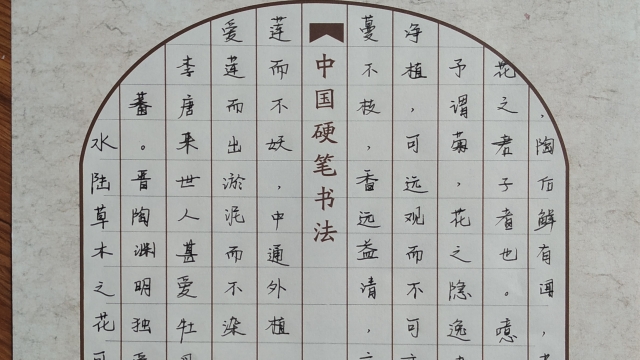 水陆草木之花可
蕃。晋陶渊明独爱
李唐来世人甚爱牡
爱莲而出淤泥而不染
莲而不妖，中通外植
中国硬笔书法
蔓不枝，香远益清，
净植，可远观而不可
予谓菊，花之隐逸
花之君子者也。噫
，陶后鲜有闻，